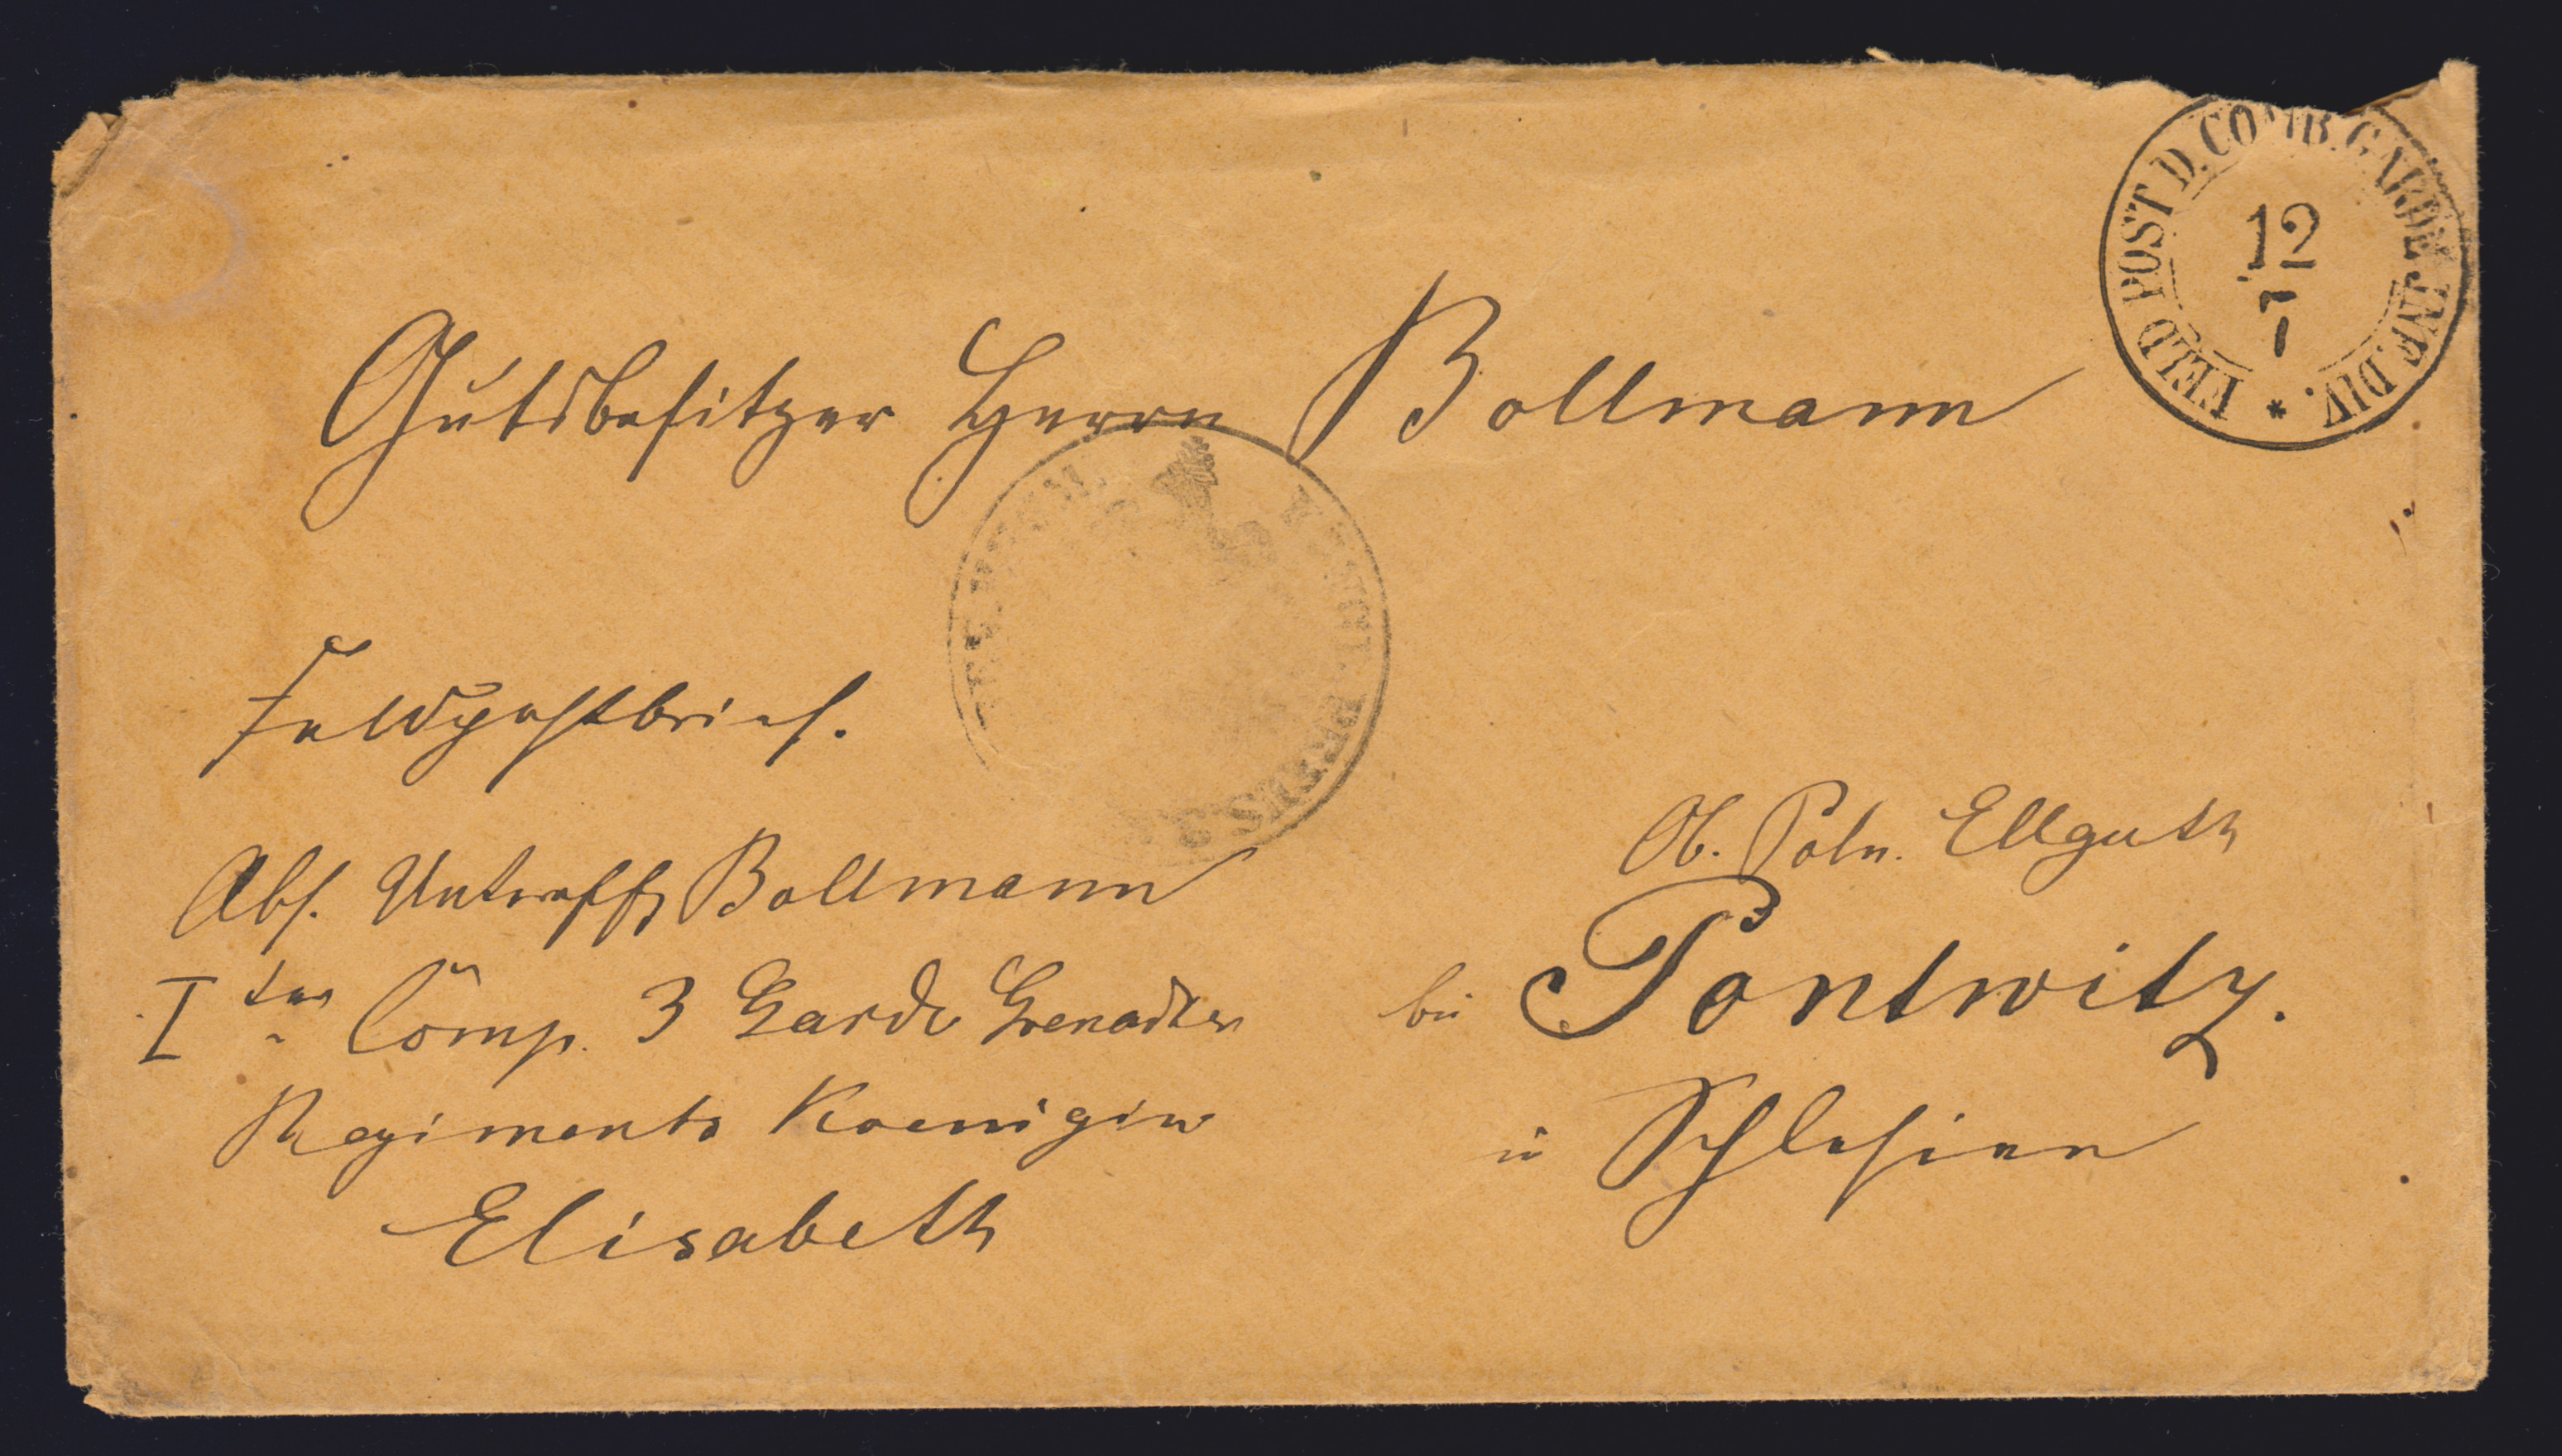 FELD POST D. COMB. GARDE INF. DIV.
12
7
Gutsbesitzer Herrn Bollmann
Feldpostbrief.
KÖNIGL. PREUSS.
Abs. Unteroffz Bollmann
I ter Comp. 3 Garde Grenadier
Regiments Koenigin
Elisabeth
Ob. Poln. Ellguth
bei Pontwitz.
in Schlesien